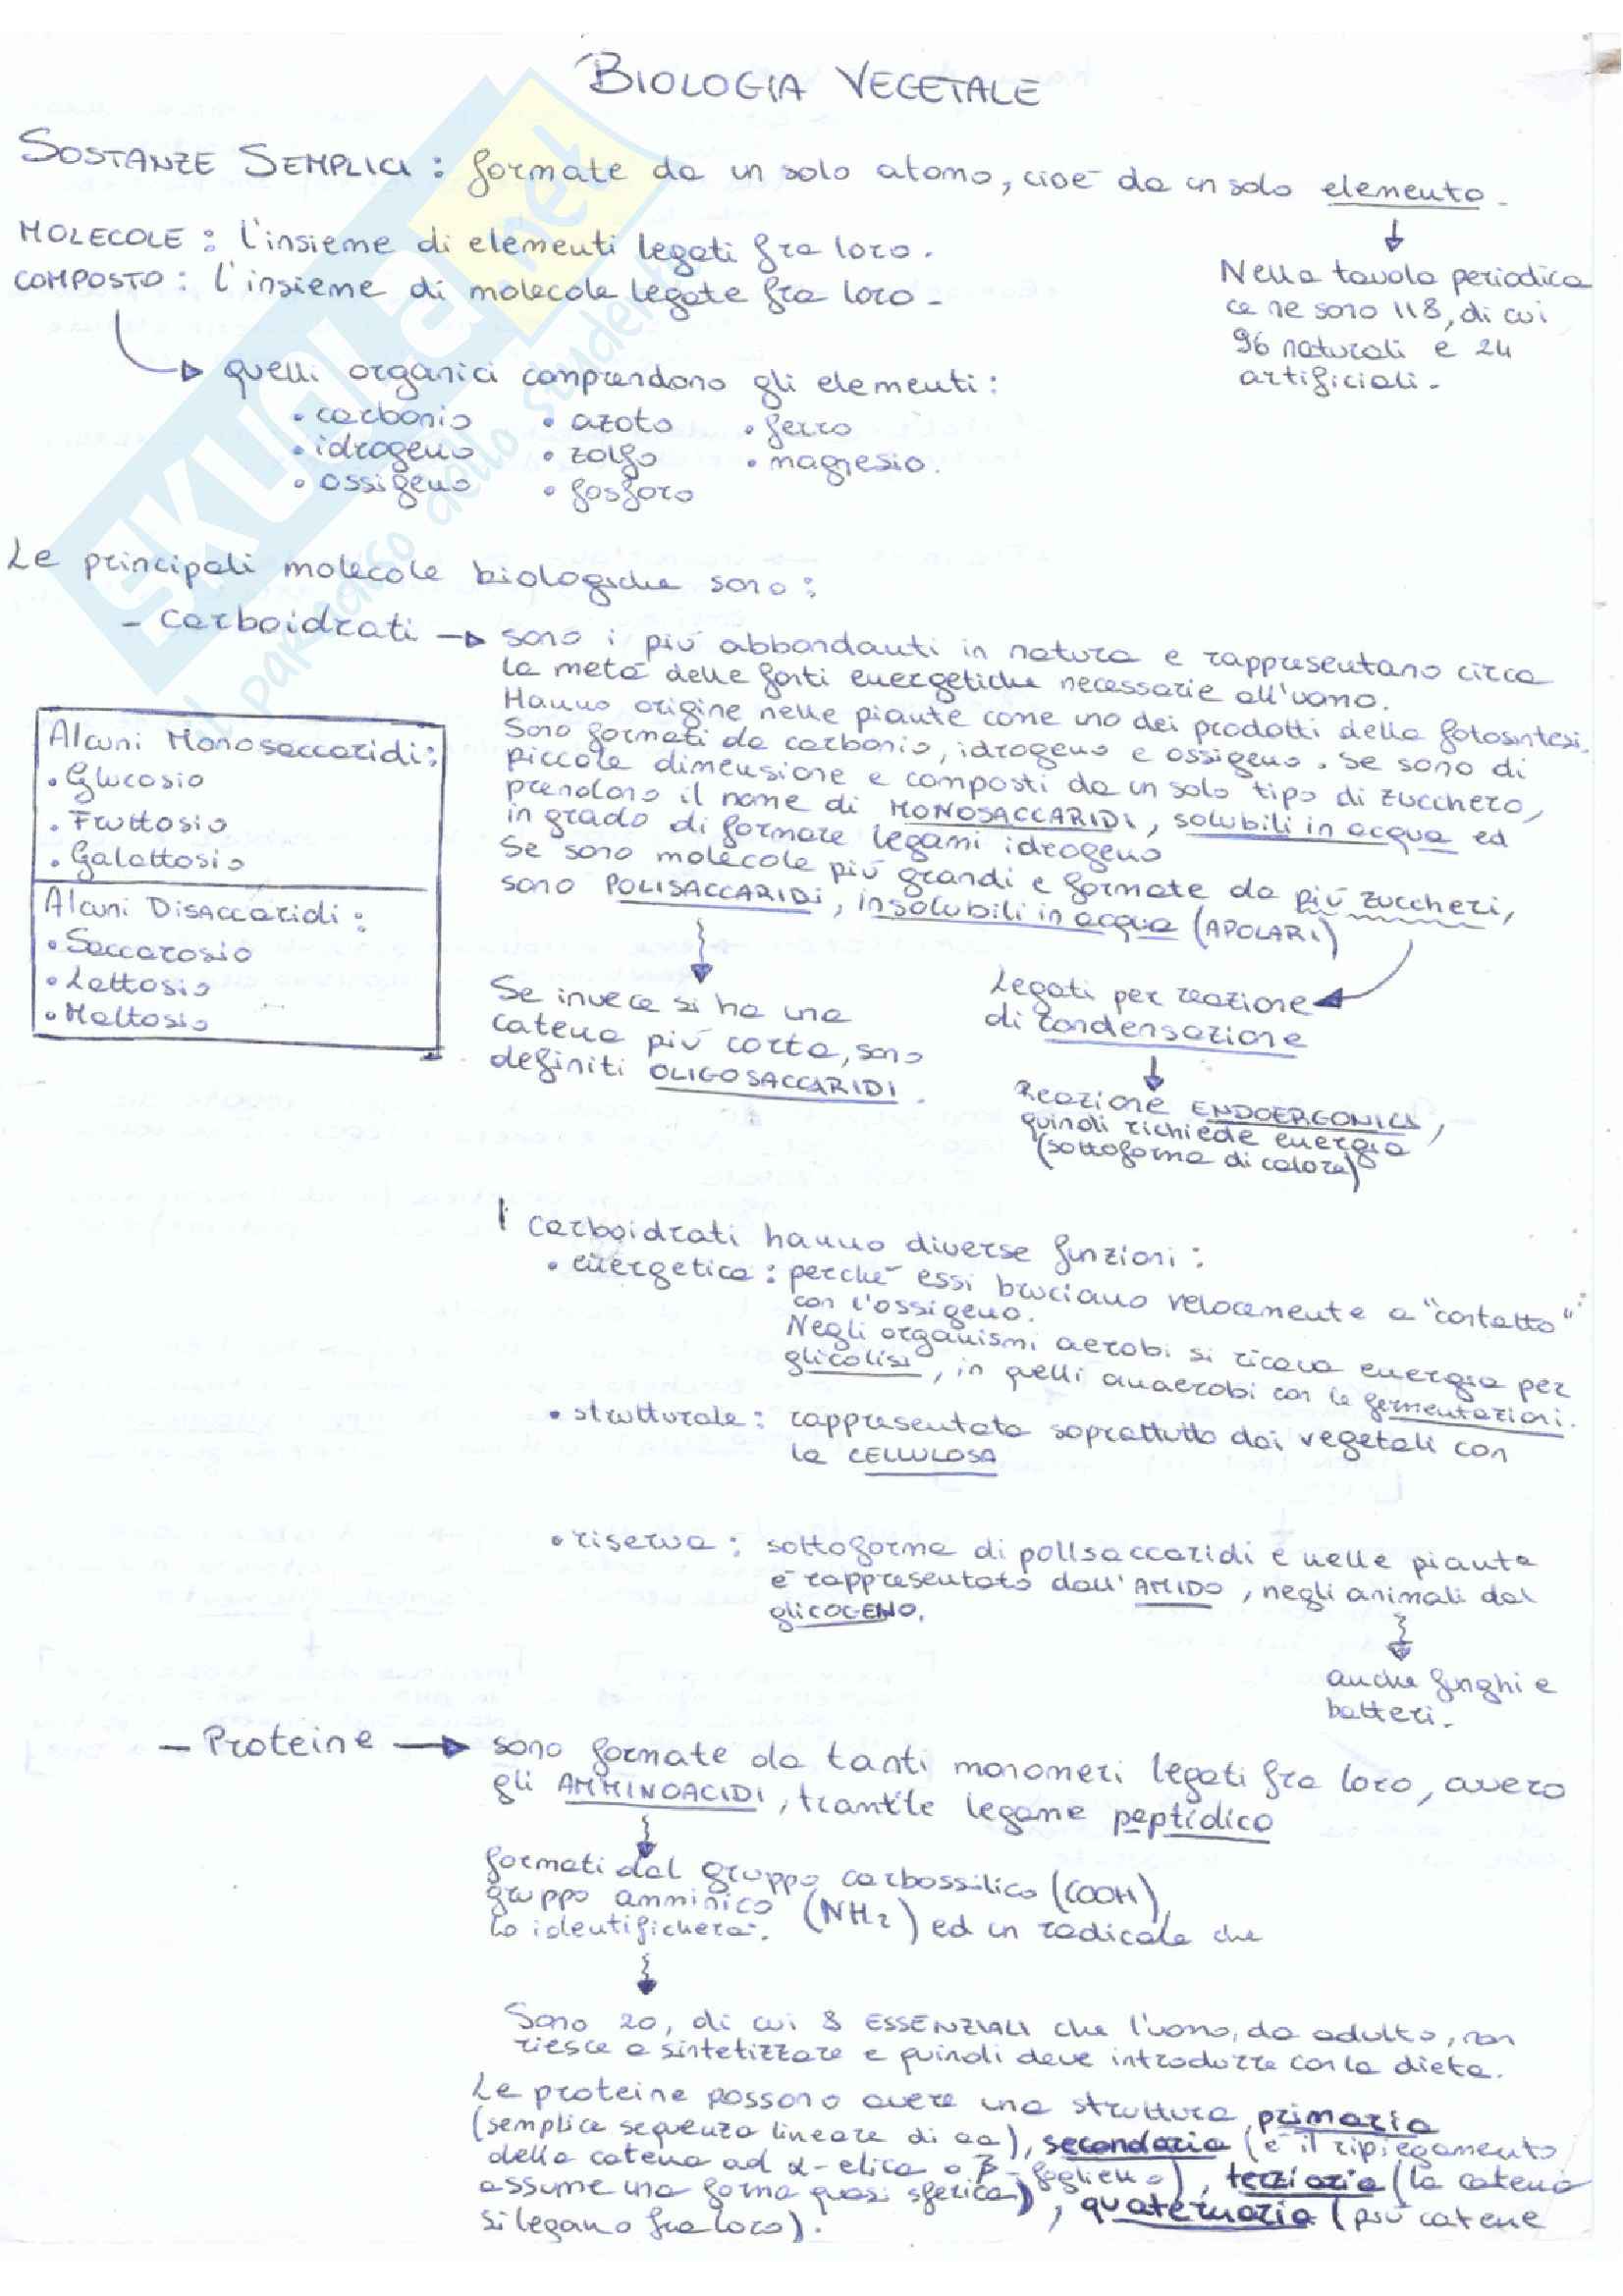 BIOLOGIA VEGETALE
SOSTANZE SEMPLICI : formate da un solo atomo, cioè da un solo elemento.
MOLECOLE : l'insieme di elementi legati fra loro.
COMPOSTO : l'insieme di molecole legate fra loro.
Nella tavola periodica
ce ne sono 118, di cui
96 naturali e 24
artificiali.
quelli organici comprendono gli elementi :
• carbonio • azoto • ferro
• idrogeno • zolfo • magnesio.
• ossigeno • fosforo
Le principali molecole biologiche sono :
- carboidrati → sono i più abbondanti in natura e rappresentano circa
la metà delle fonti energetiche necessarie all'uomo.
Hanno origine nelle piante come uno dei prodotti della fotosintesi.
Sono formati da carbonio, idrogeno e ossigeno. Se sono di
piccole dimensione e composti da un solo tipo di zucchero,
prendono il nome di MONOSACCARIDI, solubili in acqua ed
in grado di formare legami idrogeno
Se sono molecole più grandi e formate da più zuccheri,
sono POLISACCARIDI, insolubili in acqua (APOLARI)
Alcuni Monosaccaridi :
• Glucosio
• Fruttosio
• Galattosio
Alcuni Disaccaridi :
• Saccarosio
• Lattosio
• Maltosio
Se invece si ha una
catena più corta, sono
definiti OLIGOSACCARIDI.
Legati per reazione
di condensazione
Reazione ENDOERGONICA,
quindi richiede energia
(sottoforma di calore)
I carboidrati hanno diverse funzioni :
• energetica : perché essi bruciano velocemente a "contatto"
con l'ossigeno.
Negli organismi aerobi si ricava energia per
glicolisi, in quelli anaerobi con le fermentazioni.
• strutturale : rappresentata soprattutto dai vegetali con
la CELLULOSA
• riserva : sottoforma di polisaccaridi e nelle piante
è rappresentato dall'AMIDO, negli animali dal
glicoGENO.
anche funghi e
batteri.
- Proteine → sono formate da tanti monomeri legati fra loro, ovvero
gli AMMINOACIDI, tramite legame peptidico
formati dal gruppo carbossilico (COOH),
gruppo amminico (NH2) ed un radicale che
lo identificherà.
Sono 20, di cui 8 ESSENZIALI che l'uomo, da adulto, non
riesce a sintetizzare e quindi deve introdurre con la dieta.
Le proteine possono avere una struttura primaria
(semplice sequenza lineare di aa), secondaria (è il ripiegamento
della catena ad α-elica o β-foglietto), terziaria (la catena
assume una forma quasi sferica), quaternaria (più catene
si legano fra loro).
SKUOLA.net
il paradiso dello studente